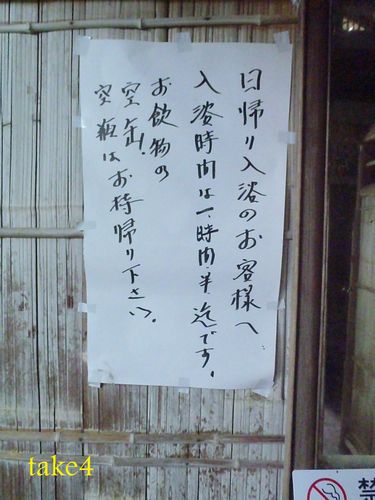 日帰り入浴のお客様へ
入浴時間は一時間半迄です。
お飲物の
空缶.
空瓶はお持帰り下さい。
take4
禁